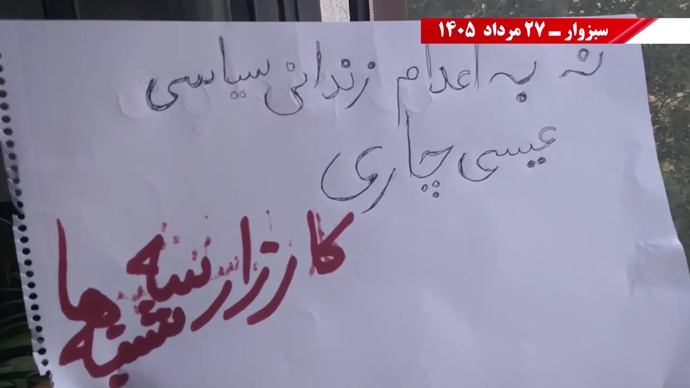 سبزوار ــ ۲۷ مرداد ۱۴۰۵
نه به اعدام زندانی سیاسی
عیسی چاری
کارزار سه
شنبه ها